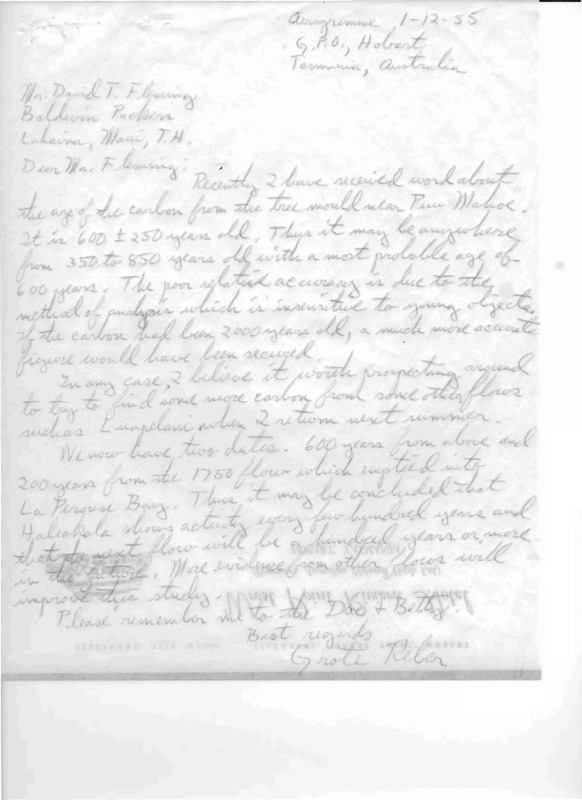 Aerogramme 1-12-55
G.P.O., Hobart
Tasmania, Australia
Mr. David T. Fleming
Baldwin Packers
Lahaina, Maui, T.H.
Dear Mr. Fleming:
Recently I have received word about
the age of the carbon from the tree mould near Puu Mahoe.
It is 600 ± 250 years old. Thus it may be anywhere
from 350 to 850 years old with a most probable age of
600 years. The poor relative accuracy is due to the
method of analysis which is insensitive to young objects.
If the carbon had been 2000 years old, a much more accurate
figure would have been secured.
In any case, I believe it worth prospecting around
to try to find some more carbon from some other flows
such as Lualapelani when I return next summer.
We now have two dates. 600 years from above and
200 years from the 1750 flow which emptied into
La Perouse Bay. Thus it may be concluded that
Haleakala shows activity every few hundred years and
that the next flow will be a hundred years or more
in the future. More evidence from other flows will
improve this study.
Please remember me to the Doc & Betty.
Best regards
Grote Reber